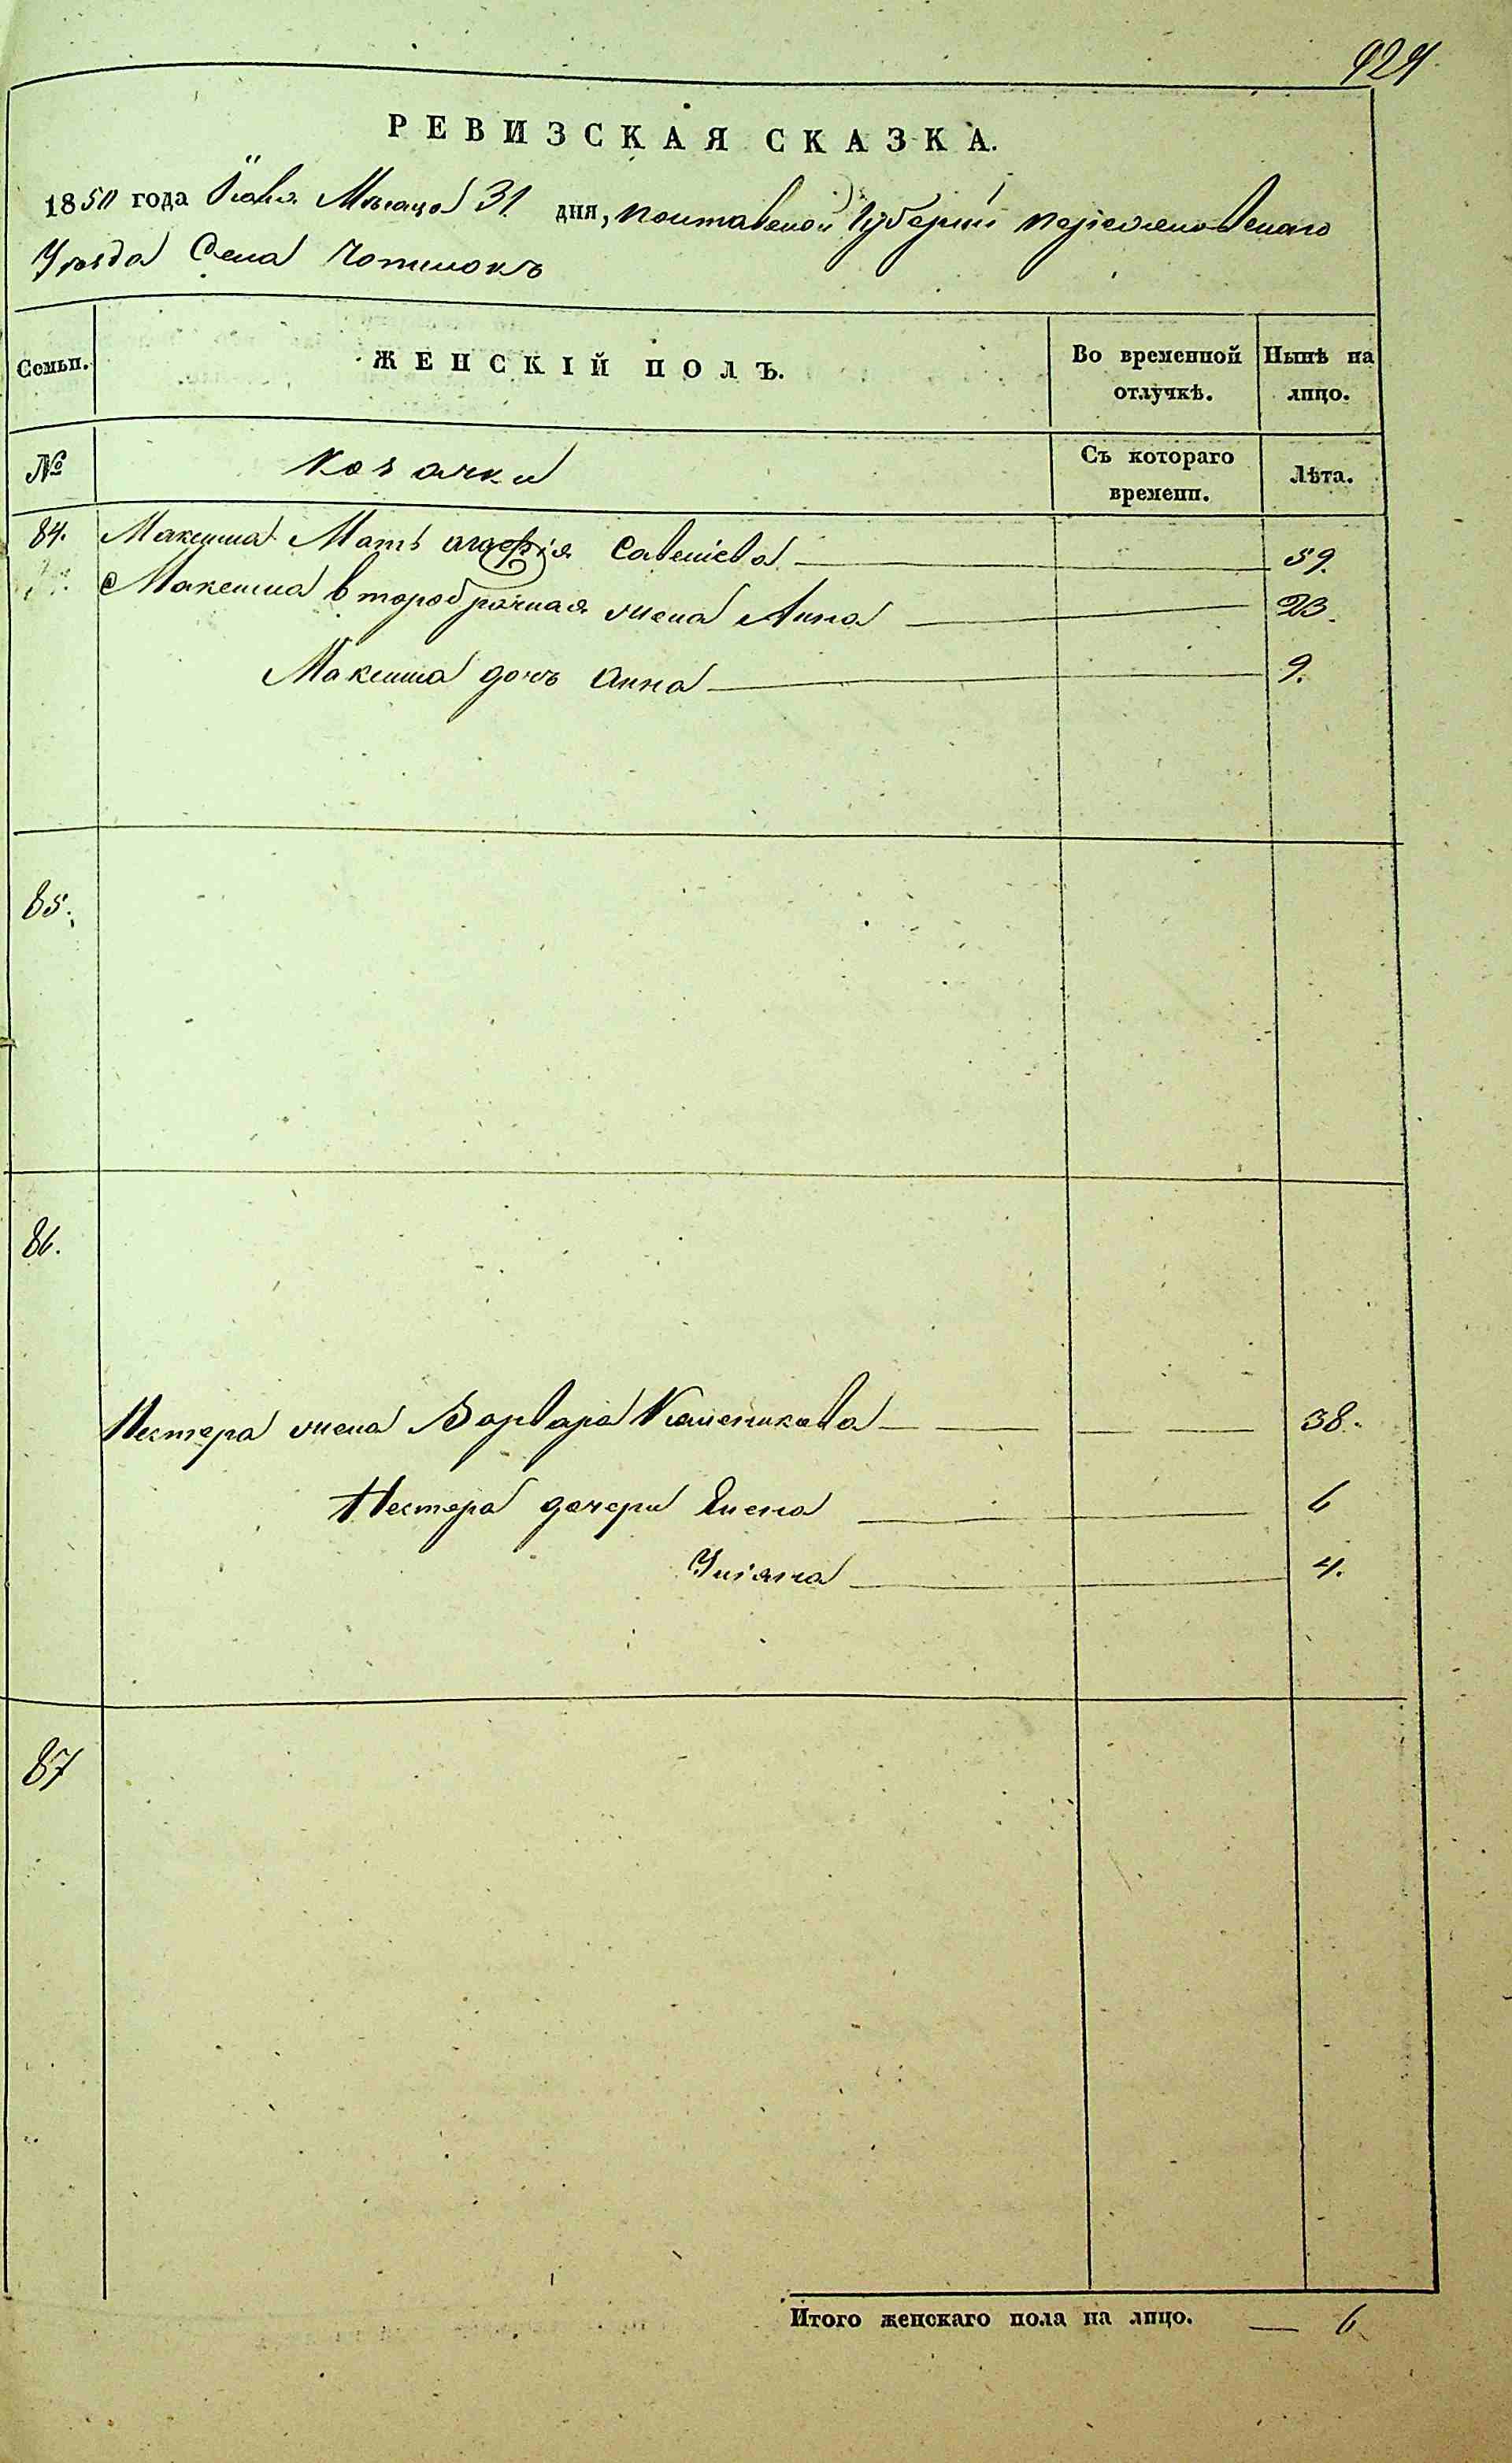 924
РЕВИЗСКАЯ СКАЗКА.
1850 года Іюля Месяца 31 дня, Полтавской Губерніи Переяславскаго
Уезда Села Чопилокъ
Семьи. ЖЕНСКІЙ ПОЛЪ. Во временной отлучкѣ. Нынѣ на лицо.
№ Козачки Съ котораго времени. Лѣта.
84. Максима Мать агафія Савеліева 59.
Максима второбрачная жена Анна 23.
Максима дочь Анна 9.
85.
86.
Нестера жена Варвара 38.
Нестера дочери Елена 6
Уліяна 4.
87
Итого женскаго пола на лицо. — 6